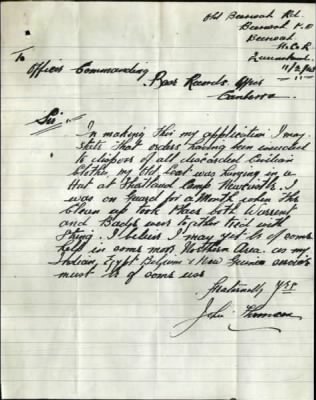 Old Beerwah Rd.
Beerwah P.O
Beerwah
N.C.R
Queensland
11/2/
To
Officer Commanding,
Base Records Office
Canberra
Sir,
In making this my application I may
state that orders having been issued
to dispose of all discarded Civilian
Clothes, my Old Coat was hanging in a
Hut at Camp Newcastle. I
was on Guard for a Month when this
Clean up took place both Warrent
and Badge were together tied with
String. I I may yet be of some
help in some more Northern Area. as my
Indian, Egypt Belgium & New Guinea
must be of some use
Fraternally Yrs
John